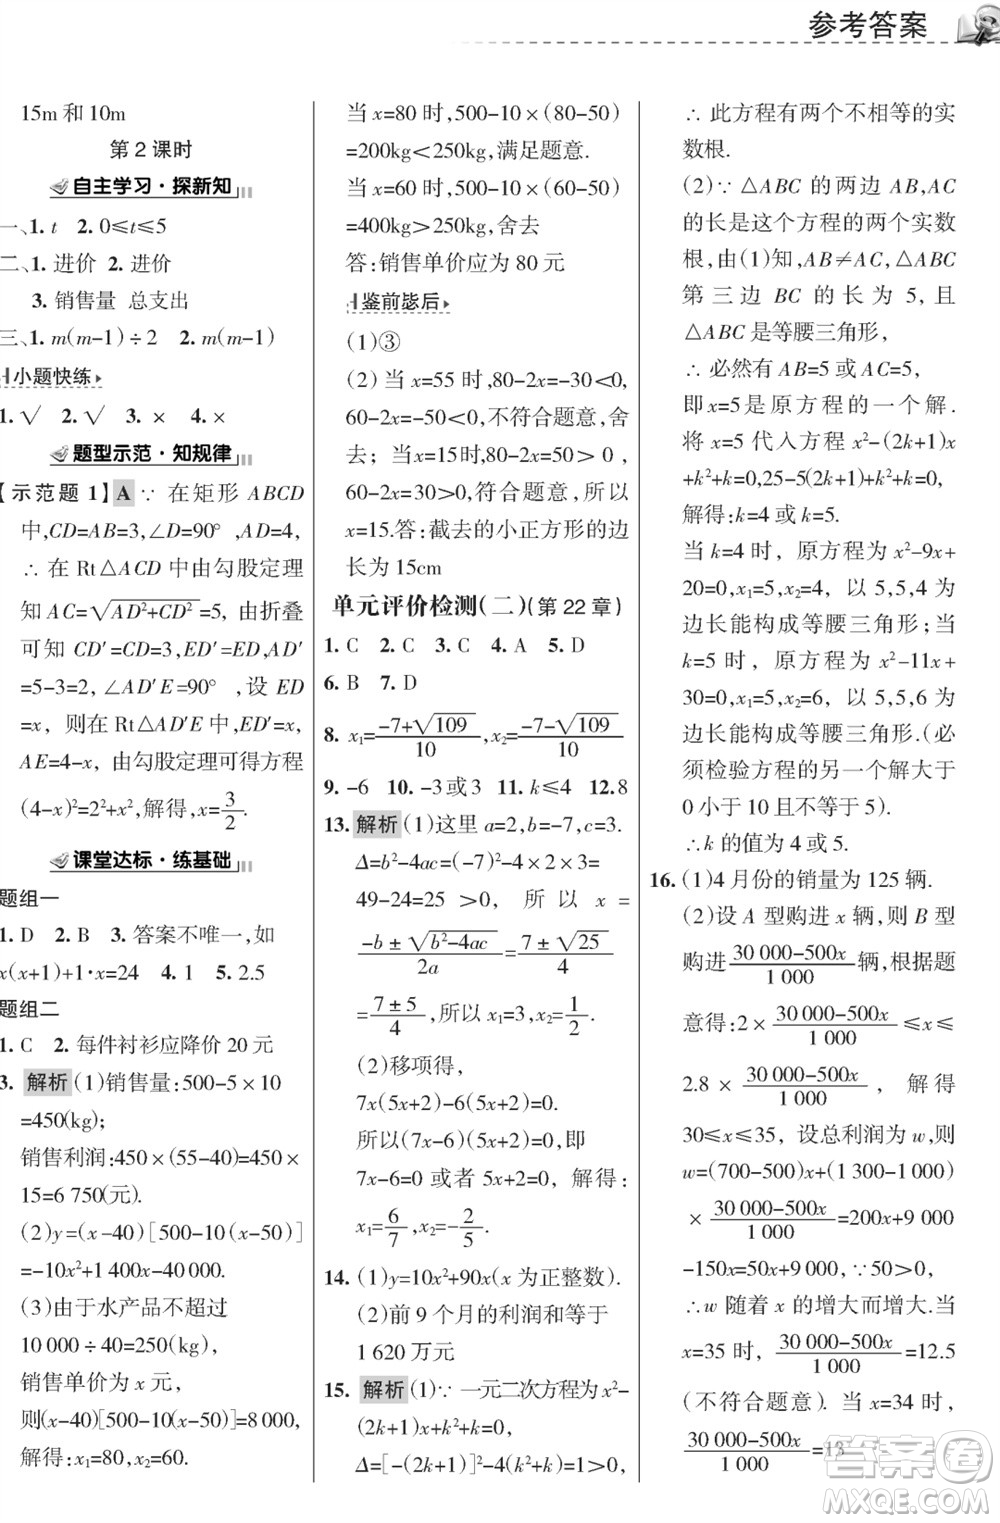 参考答案
15m 和 10m
第 2 课时
自主学习·探新知
一、1. t  2. 0≤t≤5
二、1. 进价  2. 进价
3. 销售量  总支出
三、1. m(m-1)÷2  2. m(m-1)
小题快练
1. √  2. √  3. ×  4. ×
题型示范·知规律
【示范题 1】A ∵ 在矩形 ABCD
中,CD=AB=3,∠D=90°,AD=4,
∴ 在 Rt△ACD 中由勾股定理
知 AC=√(AD²+CD²)=5,由折叠
知 CD′=CD=3,D′E=ED,AD′
=5-3=2,∠AD′E=90°,设 ED
=x, 则在 Rt△AD′E 中,ED′=x,
AE=4-x, 由勾股定理可得方程
(4-x)²=2²+x²,解得,x=3/2.
课堂达标·练基础
题组一
1. D  2. B  3. 答案不唯一,如
x(x+1)+1·x=24  4. 1  5. 2.5
题组二
1. C  2. 每件衬衫应降价 20 元
3. 解析 (1)销售量:500-5×10
=450(kg);
销售利润:450×(55-40)=450×
15=6 750(元).
(2)y=(x-40)[500-10(x-50)]
=-10x²+1 400x-40 000.
(3)由于水产品不超过
10 000÷40=250(kg)
销售单价为 x 元,
则(x-40)[500-10(x-50)]=8 000,
解得:x₁=80,x₂=60.
当 x=80 时,500-10×(80-50)
=200kg<250kg,满足题意.
当 x=60 时,500-10×(60-50)
=400kg>250kg,舍去
答:销售单价应为 80 元
鉴前毖后
(1)③
(2) 当 x=55 时,80-2x=-30<0,
60-2x=-50<0,不符合题意,舍
去；当 x=15 时,80-2x=50>0,
60-2x=30>0,符合题意,所以
x=15.答：截去的小正方形的边
长为 15cm
单元评价检测(二)(第 22 章)
1. C  2. C  3. C  4. A  5. D
6. B  7. D
8. x₁=(-7+√109)/10,x₂=(-7-√109)/10
9. -6  10. -3或3  11. k≤4  12.8
13. 解析 (1)这里 a=2,b=-7,c=3.
Δ=b²-4ac=(-7)²-4×2×3=
49-24=25>0, 所以 x=
(-b±√(b²-4ac))/2a=(7±√25)/4
=(7±5)/4,所以 x₁=3,x₂=1/2.
(2)移项得,
7x(5x+2)-6(5x+2)=0.
所以(7x-6)(5x+2)=0,即
7x-6=0 或者 5x+2=0,解得:
x₁=6/7,x₂=-2/5.
14. (1)y=10x²+90x(x 为正整数).
(2)前 9 个月的利润和等于
1 620万元
15. 解析 (1)∵ 一元二次方程为x²-
(2k+1)x+k²+k=0,
Δ=[-(2k+1)]²-4(k²+k)=1>0,
∴ 此方程有两个不相等的实
数根.
(2)∵ △ABC 的两边 AB,AC
的长是这个方程的两个实数
根,由(1)知,AB≠AC,△ABC
第三边 BC 的长为 5,且
△ABC是等腰三角形,
∴ 必然有 AB=5 或AC=5,
即x=5是原方程的一个解.
将 x=5 代入方程 x²-(2k+1)x
+k²+k=0,25-5(2k+1)+k²+k=0,
解得:k=4或 k=5.
当 k=4 时, 原方程为 x²-9x+
20=0,x₁=5,x₂=4, 以 5,5,4 为
边长能构成等腰三角形；当
k=5 时, 原方程为 x²-11x+
30=0,x₁=5,x₂=6, 以5,5,6 为
边长能构成等腰三角形.(必
须检验方程的另一个解大于
0 小于 10 且不等于 5).
∴k 的值为 4 或 5.
16. (1)4 月份的销量为 125 辆.
(2)设 A 型购进 x 辆,则 B 型
购进(30 000-500x)/1 000辆,根据题
意得:2×(30 000-500x)/1 000≤x≤
2.8×(30 000-500x)/1 000, 解得
30≤x≤35, 设总利润为 w,则
w=(700-500)x+(1 300-1 000)
×(30 000-500x)/1 000=200x+9 000
-150x=50x+9 000,∵50>0,
∴w 随着 x 的增大而增大.当
x=35 时,(30 000-500x)/1 000=12.5
(不符合题意). 当 x=34 时,
(30 000-500x)/1 000=13
答案圈
MXQE.COM